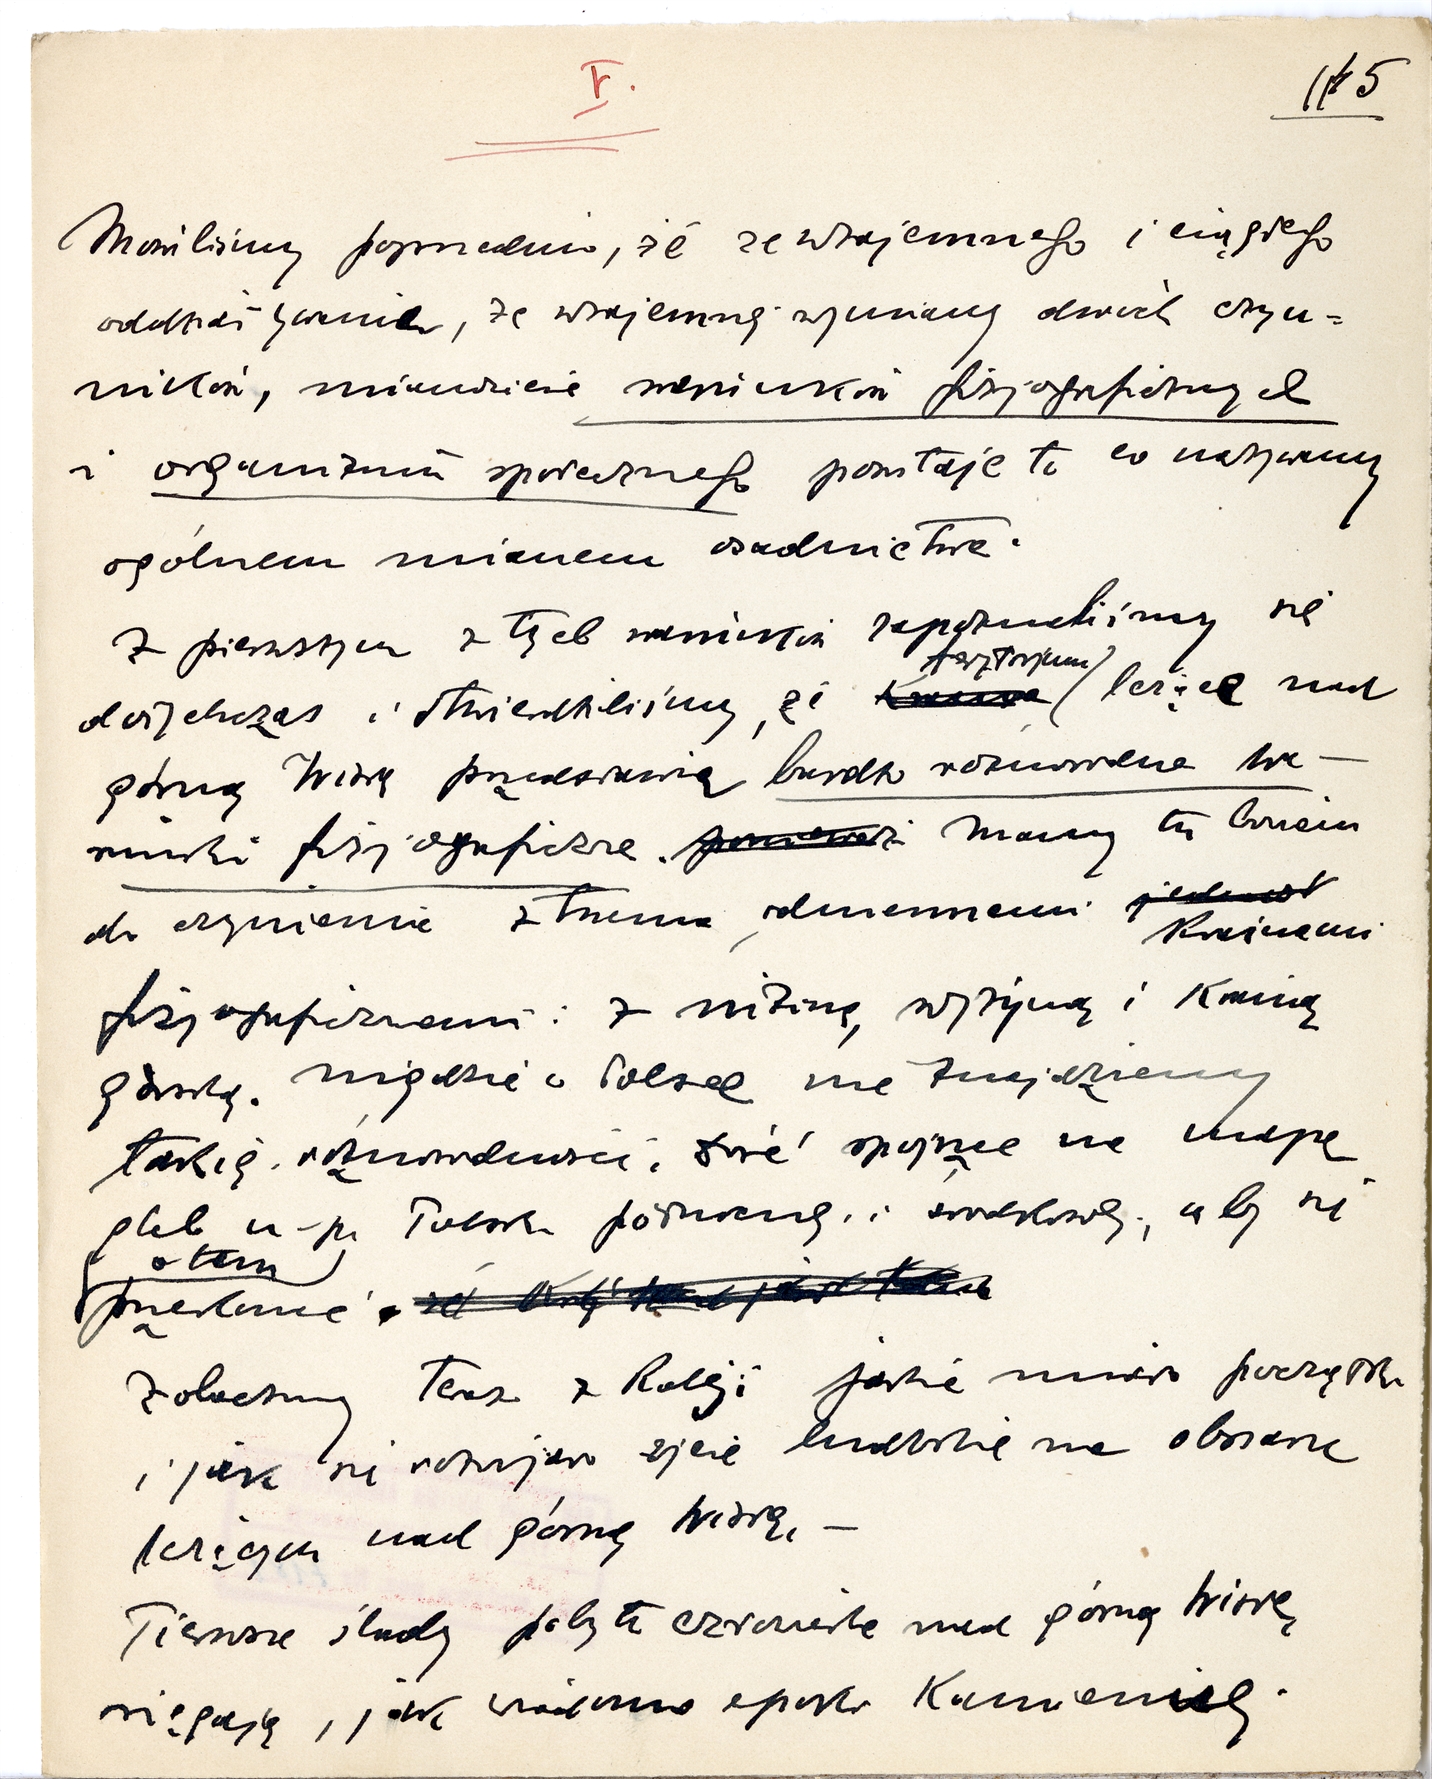 V.
5
Mówiliśmy poprzednio, że ze wzajemnego i ciągłego
oddziaływania, ze wzajemnej wymiany dwóch czyn=
ników, mianowicie warunków fizjograficznych
i organizmu społecznego powstaje to co nazywamy
ogólnem mianem osadnictwa.
Z pierwszym z tych warunków zapoznaliśmy się
terytorjum
dotychczas i stwierdziliśmy, że leżące nad
górną Wisłą przedstawia bardzo różnorodne wa-
runki fizjograficzne. Mamy tu bowiem
do czynienia z trzema odmiennemi
Krainami
fizjograficznemi: z niziną, wyżyną i Krainą
górską. Nigdzie w Polsce nie znajdziemy
takiej różnorodności. Dość spojrzeć na mapę
gleb n-p. Polski północnej i środkowej, aby się
o tem
przekonać.
Zobaczmy teraz z Kolei jakie miało początki
i jak się rozwijało życie ludzkie na obszarze
leżącym nad górną Wisłą. -
Pierwsze ślady pobytu człowieka nad górną Wisłą
sięgają, jak wiadomo epoki Kamiennej.